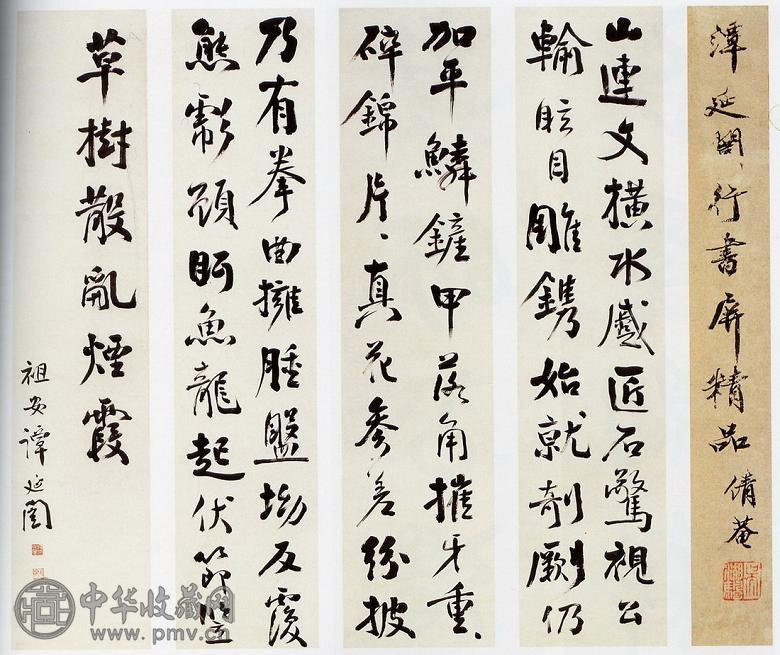 譚延闓行書屏精品 倩菴
山連文橫水蹙匠石驚視公
輸眩目雕鐫始就剞劂仍
加平鱗鏟甲落角摧牙重、
碎錦片、真花參差紛披
乃有拳曲擁腫盤坳反覆
熊彪顧盼魚龍起伏節豎
草樹散亂煙霞
祖安譚延闓
中华收藏网
www.pmv.cn